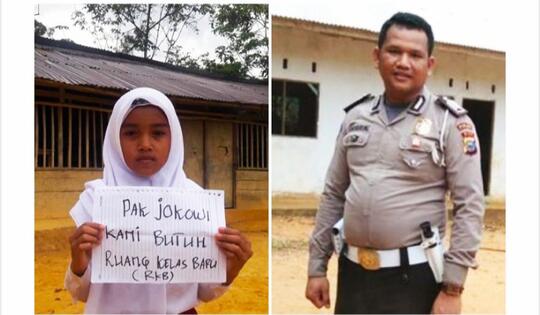 PAK JOKOWI
KAMI BUTUH
RUANG KELAS BARU
(RKB)